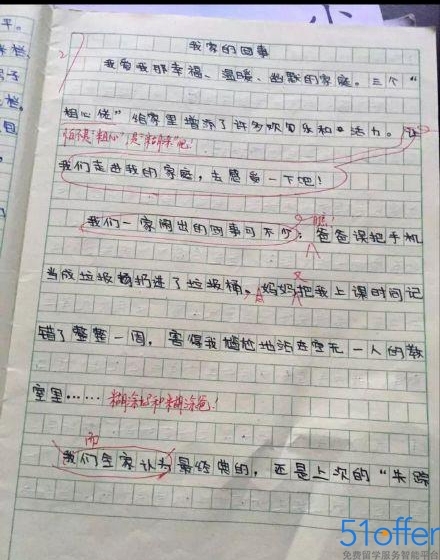 平。
栏
子
栏,
目
我家的囧事
我爱我那幸福、温暖、幽默的家庭。三个“
粗心佬”给家里增添了许多欢乐和活力。让
怕不是“粗心”是“糊涂”吧!
我们走进我的家庭,去感受一下吧!
瞧!
我们一家闹出的囧事可不少,爸爸误把手机
又
当成垃圾扔进了垃圾桶,妈妈把我上课时间记
错了整整一周,害得我尴尬地站在空无一人的教
室里……糊涂妈和糊涂爸!
而
我们全家认为最经典的,还是上次的“失踪
51offer
免费留学服务智能平台